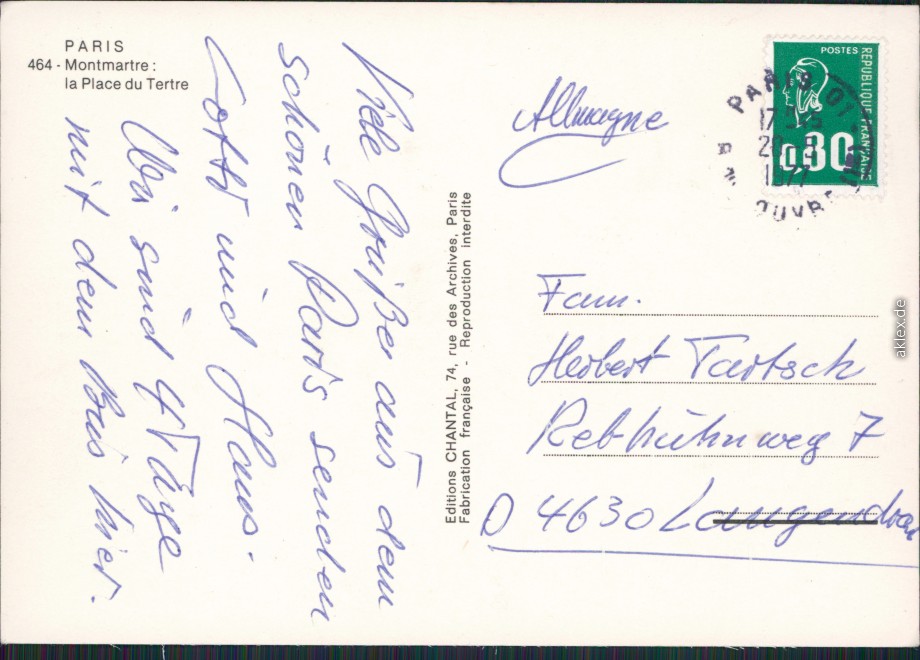 PARIS
464 - Montmartre :
la Place du Tertre
Viele Grüße aus dem
schönen Paris senden
Lotti und Hans.
Wir sind 4 Tage
mit dem Bus hier.
Editions CHANTAL, 74, rue des Archives, Paris
Fabrication française - Reproduction interdite
Allmagne
POSTES
REPUBLIQUE FRANÇAISE
0,80
PARIS 01
1977
Fam.
Herbert Tartsch
Rebhuhnweg 7
D 4630 Langendreer
aklex.de